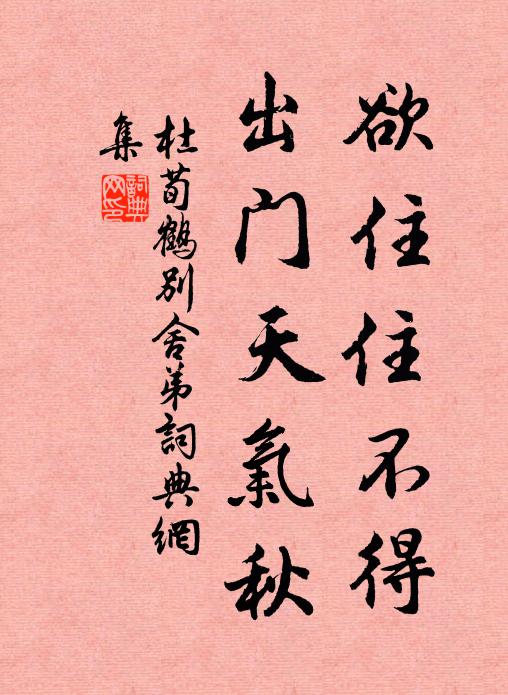 欲住住不得
出门天氣秋
杜荀鶴別舍弟詞典網
集
詞典
网印